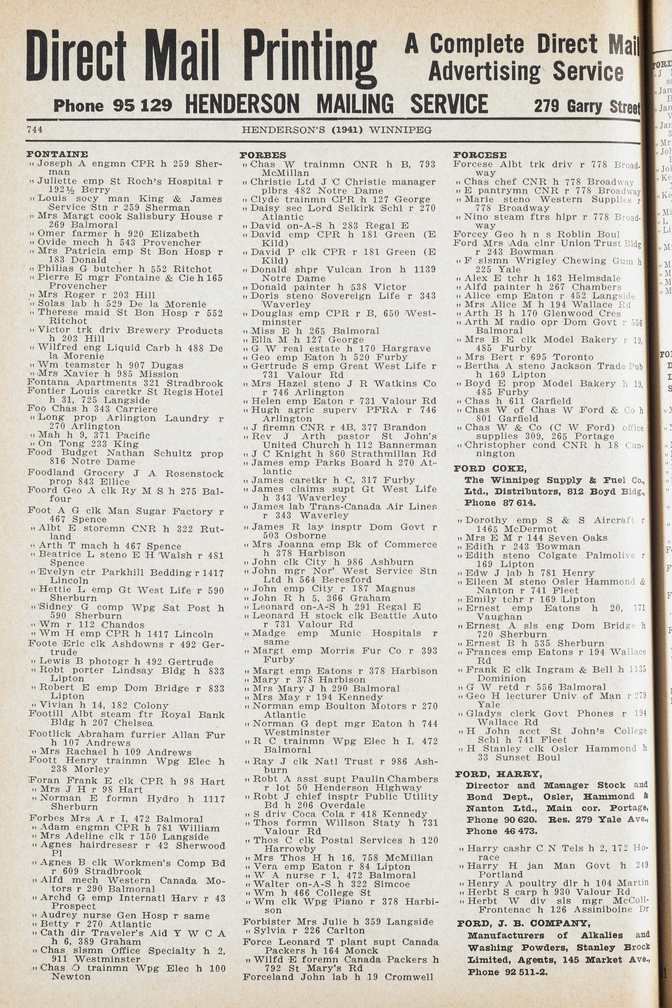 Direct Mail Printing
A Complete Direct Mail
Advertising Service
Phone 95 129 HENDERSON MAILING SERVICE 279 Garry Street
744 HENDERSON'S (1941) WINNIPEG
FONTAINE
" Joseph A engmn CPR h 259 Sher-
man
" Juliette emp St Roch's Hospital r
192½ Berry
" Louis socy man King & James
Service Stn r 259 Sherman
" Mrs Margt cook Salisbury House r
269 Balmoral
" Omer farmer h 920 Elizabeth
" Ovide mech h 543 Provencher
" Mrs Patricia emp St Bon Hosp r
183 Donald
" Philias G butcher h 552 Ritchot
" Pierre E mgr Fontaine & Cie h 165
Provencher
" Mrs Roger r 203 Hill
" Solas lab h 529 De la Morenie
" Therese maid St Bon Hosp r 552
Ritchot
" Victor trk driv Brewery Products
h 203 Hill
" Wilfred eng Liquid Carb h 488 De
la Morenie
" Wm teamster h 907 Dugas
" Mrs Xavier h 985 Mission
Fontana Apartments 321 Stradbrook
Fontier Louis caretkr St Regis Hotel
h 31, 725 Langside
Foo Chas h 343 Carriere
" Long prop Arlington Laundry r
270 Arlington
" Mah h 9, 371 Pacific
" On Tong 233 King
Food Budget Nathan Schultz prop
816 Notre Dame
Foodland Grocery J A Rosenstock
prop 843 Ellice
Foord Geo A clk Ry M S h 275 Bal-
four
Foot A G clk Man Sugar Factory r
467 Spence
" Albt E storemn CNR h 322 Rut-
land
" Arth T mach h 467 Spence
" Beatrice L steno E H Walsh r 481
Spence
" Evelyn ctr Parkhill Bedding r 1417
Lincoln
" Hettie L emp Gt West Life r 590
Sherburn
" Sidney G comp Wpg Sat Post h
590 Sherburn
" Wm r 112 Chandos
" Wm H emp CPR h 1417 Lincoln
Foote Eric clk Ashdowns r 492 Ger-
trude
" Lewis B photogr h 492 Gertrude
" Robt porter Lindsay Bldg h 833
Lipton
" Robert E emp Dom Bridge r 833
Lipton
" Vivian h 14, 182 Colony
Footill Albt steam ftr Royal Bank
Bldg h 207 Chelsea
Footlick Abraham furrier Allan Fur
h 107 Andrews
" Mrs Rachael h 109 Andrews
Foott Henry trainmn Wpg Elec h
238 Morley
Foran Frank E clk CPR h 98 Hart
" Mrs J H r 98 Hart
" Norman E formn Hydro h 1117
Sherburn
Forbes Mrs A r I, 472 Balmoral
" Adam engmn CPR h 781 William
" Mrs Adeline clk r 150 Langside
" Agnes hairdresesr r 42 Sherwood
Pl
" Agnes B clk Workmen's Comp Bd
r 609 Stradbrook
" Alfd mech Western Canada Mo-
tors r 290 Balmoral
" Archd G emp Internatl Harv r 43
Prospect
" Audrey nurse Gen Hosp r same
" Betty r 270 Atlantic
" Cath dir Traveler's Aid Y W C A
h 6, 389 Graham
" Chas slsmn Office Specialty h 2,
911 Westminster
" Chas O trainmn Wpg Elec h 100
Newton
FORBES
" Chas W trainmn CNR h B, 793
McMillan
" Christie Ltd J C Christie manager
plbrs 482 Notre Dame
" Clyde trainmn CPR h 127 George
" Daisy sec Lord Selkirk Schl r 270
Atlantic
" David on-A-S h 283 Regal E
" David emp CPR h 181 Green (E
Kild)
" David P clk CPR r 181 Green (E
Kild)
" Donald shpr Vulcan Iron h 1139
Notre Dame
" Donald painter h 538 Victor
" Doris steno Sovereign Life r 343
Waverley
" Douglas emp CPR r B, 650 West-
minster
" Miss E h 265 Balmoral
" Ella M h 127 George
" G W real estate h 170 Hargrave
" Geo emp Eaton h 520 Furby
" Gertrude S emp Great West Life r
731 Valour Rd
" Mrs Hazel steno J R Watkins Co
r 746 Arlington
" Helen emp Eaton r 731 Valour Rd
" Hugh agric superv PFRA r 746
Arlington
" J firemn CNR r 4B, 377 Brandon
" Rev J Arth pastor St John's
United Church h 112 Bannerman
" J C Knight h 860 Strathmillan Rd
" James emp Parks Board h 270 At-
lantic
" James caretkr h C, 317 Furby
" James claims supt Gt West Life
h 343 Waverley
" James lab Trans-Canada Air Lines
r 343 Waverley
" James R lay insptr Dom Govt r
503 Osborne
" Mrs Joanna emp Bk of Commerce
h 378 Harbison
" John clk City h 986 Ashburn
" John mgr Nor' West Service Stn
Ltd h 564 Beresford
" John emp City r 187 Magnus
" John R h 5, 366 Graham
" Leonard on-A-S h 291 Regal E
" Leonard H stock clk Beattie Auto
r 731 Valour Rd
" Madge emp Munic Hospitals r
same
" Margt emp Morris Fur Co r 393
Furby
" Margt emp Eatons r 378 Harbison
" Mary r 378 Harbison
" Mrs Mary J h 290 Balmoral
" Mrs May r 194 Kennedy
" Norman emp Boulton Motors r 270
Atlantic
" Norman G dept mgr Eaton h 744
Westminster
" R C trainmn Wpg Elec h I, 472
Balmoral
" Ray J clk Natl Trust r 986 Ash-
burn
" Robt A asst supt Paulin Chambers
r lot 50 Henderson Highway
" Robt J chief insptr Public Utility
Bd h 206 Overdale
" S driv Coca Cola r 418 Kennedy
" Thos formn Willson Staty h 731
Valour Rd
" Thos C clk Postal Services h 120
Harrowby
" Mrs Thos H h 16, 758 McMillan
" Vera emp Eaton r 84 Lipton
" W A nurse r 1, 472 Balmoral
" Walter on-A-S h 322 Simcoe
" Wm h 466 College St
" Wm clk Wpg Piano r 378 Harbi-
son
Forbister Mrs Julie h 359 Langside
" Sylvia r 226 Carlton
Force Leonard T plant supt Canada
Packers h 164 Monck
" Wilfd E foremn Canada Packers h
792 St Mary's Rd
Forceland John lab h 19 Cromwell
FORCESE
Forcese Albt trk driv r 778 Broad-
way
" Chas chef CNR h 778 Broadway
" E pantrymn CNR r 778 Broadway
" Marie steno Western Supplies r
778 Broadway
" Nino steam ftrs hlpr r 778 Broad-
way
Forcey Geo h n s Roblin Boul
Ford Mrs Ada clnr Union Trust Bldg
r 243 Bowman
" F slsmn Wrigley Chewing Gum h
225 Yale
" Alex E tchr h 163 Helmsdale
" Alfd painter h 267 Chambers
" Alice emp Eaton r 452 Langside
" Mrs Alice M h 194 Wallace Rd
" Arth B h 170 Glenwood Cres
" Arth M radio opr Dom Govt r 556
Balmoral
" Mrs B E clk Model Bakery r 19,
485 Furby
" Mrs Bert r 695 Toronto
" Bertha A steno Jackson Trade Pub
h 169 Lipton
" Boyd E prop Model Bakery h 19,
485 Furby
" Chas h 611 Garfield
" Chas W of Chas W Ford & Co h
801 Garfield
" Chas W & Co (C W Ford) office
supplies 309, 265 Portage
" Christopher cond CNR h 18 Cun-
nington
FORD COKE,
The Winnipeg Supply & Fuel Co.,
Ltd., Distributors, 812 Boyd Bldg.,
Phone 87 614.
" Dorothy emp S & S Aircraft r
1465 McDermot
" Mrs E M r 144 Seven Oaks
" Edith r 243 Bowman
" Edith steno Colgate Palmolive r
169 Lipton
" Edw J lab h 781 Henry
" Eileen M steno Osler Hammond &
Nanton r 741 Fleet
" Emily tchr r 169 Lipton
" Ernest emp Eatons h 20, 171
Vaughan
" Ernest A sls eng Dom Bridge h
720 Sherburn
" Ernest B h 535 Sherburn
" Frances emp Eatons r 194 Wallace
Rd
" Frank E clk Ingram & Bell h 1135
Dominion
" G W retd r 556 Balmoral
" Geo H lecturer Univ of Man r 279
Yale
" Gladys clerk Govt Phones r 194
Wallace Rd
" H John acct St John's College
Schl h 741 Fleet
" H Stanley clk Osler Hammond h
33 Sunset Boul
FORD, HARRY,
Director and Manager Stock and
Bond Dept., Osler, Hammond &
Nanton Ltd., Main cor. Portage,
Phone 90 620. Res. 279 Yale Ave.,
Phone 46 473.
" Harry cashr C N Tels h 2, 172 Ho-
race
" Harry H jan Man Govt h 249
Portland
" Henry A poultry dlr h 104 Martin
" Herbt S carp h 930 Valour Rd
" Herbt W div sls mgr McColl-
Frontenac h 126 Assiniboine Dr
FORD, J. B. COMPANY,
Manufacturers of Alkalies and
Washing Powders, Stanley Brock
Limited, Agents, 145 Market Ave.,
Phone 92 511-2.